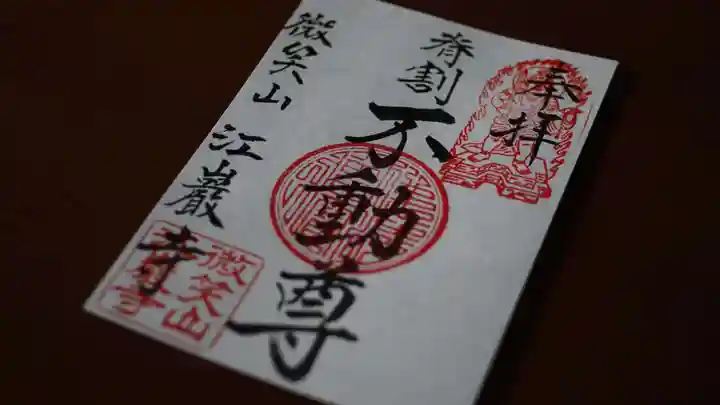 奉拝
脊割
不動尊
微笑山
江巖寺
微笑山
江巖寺